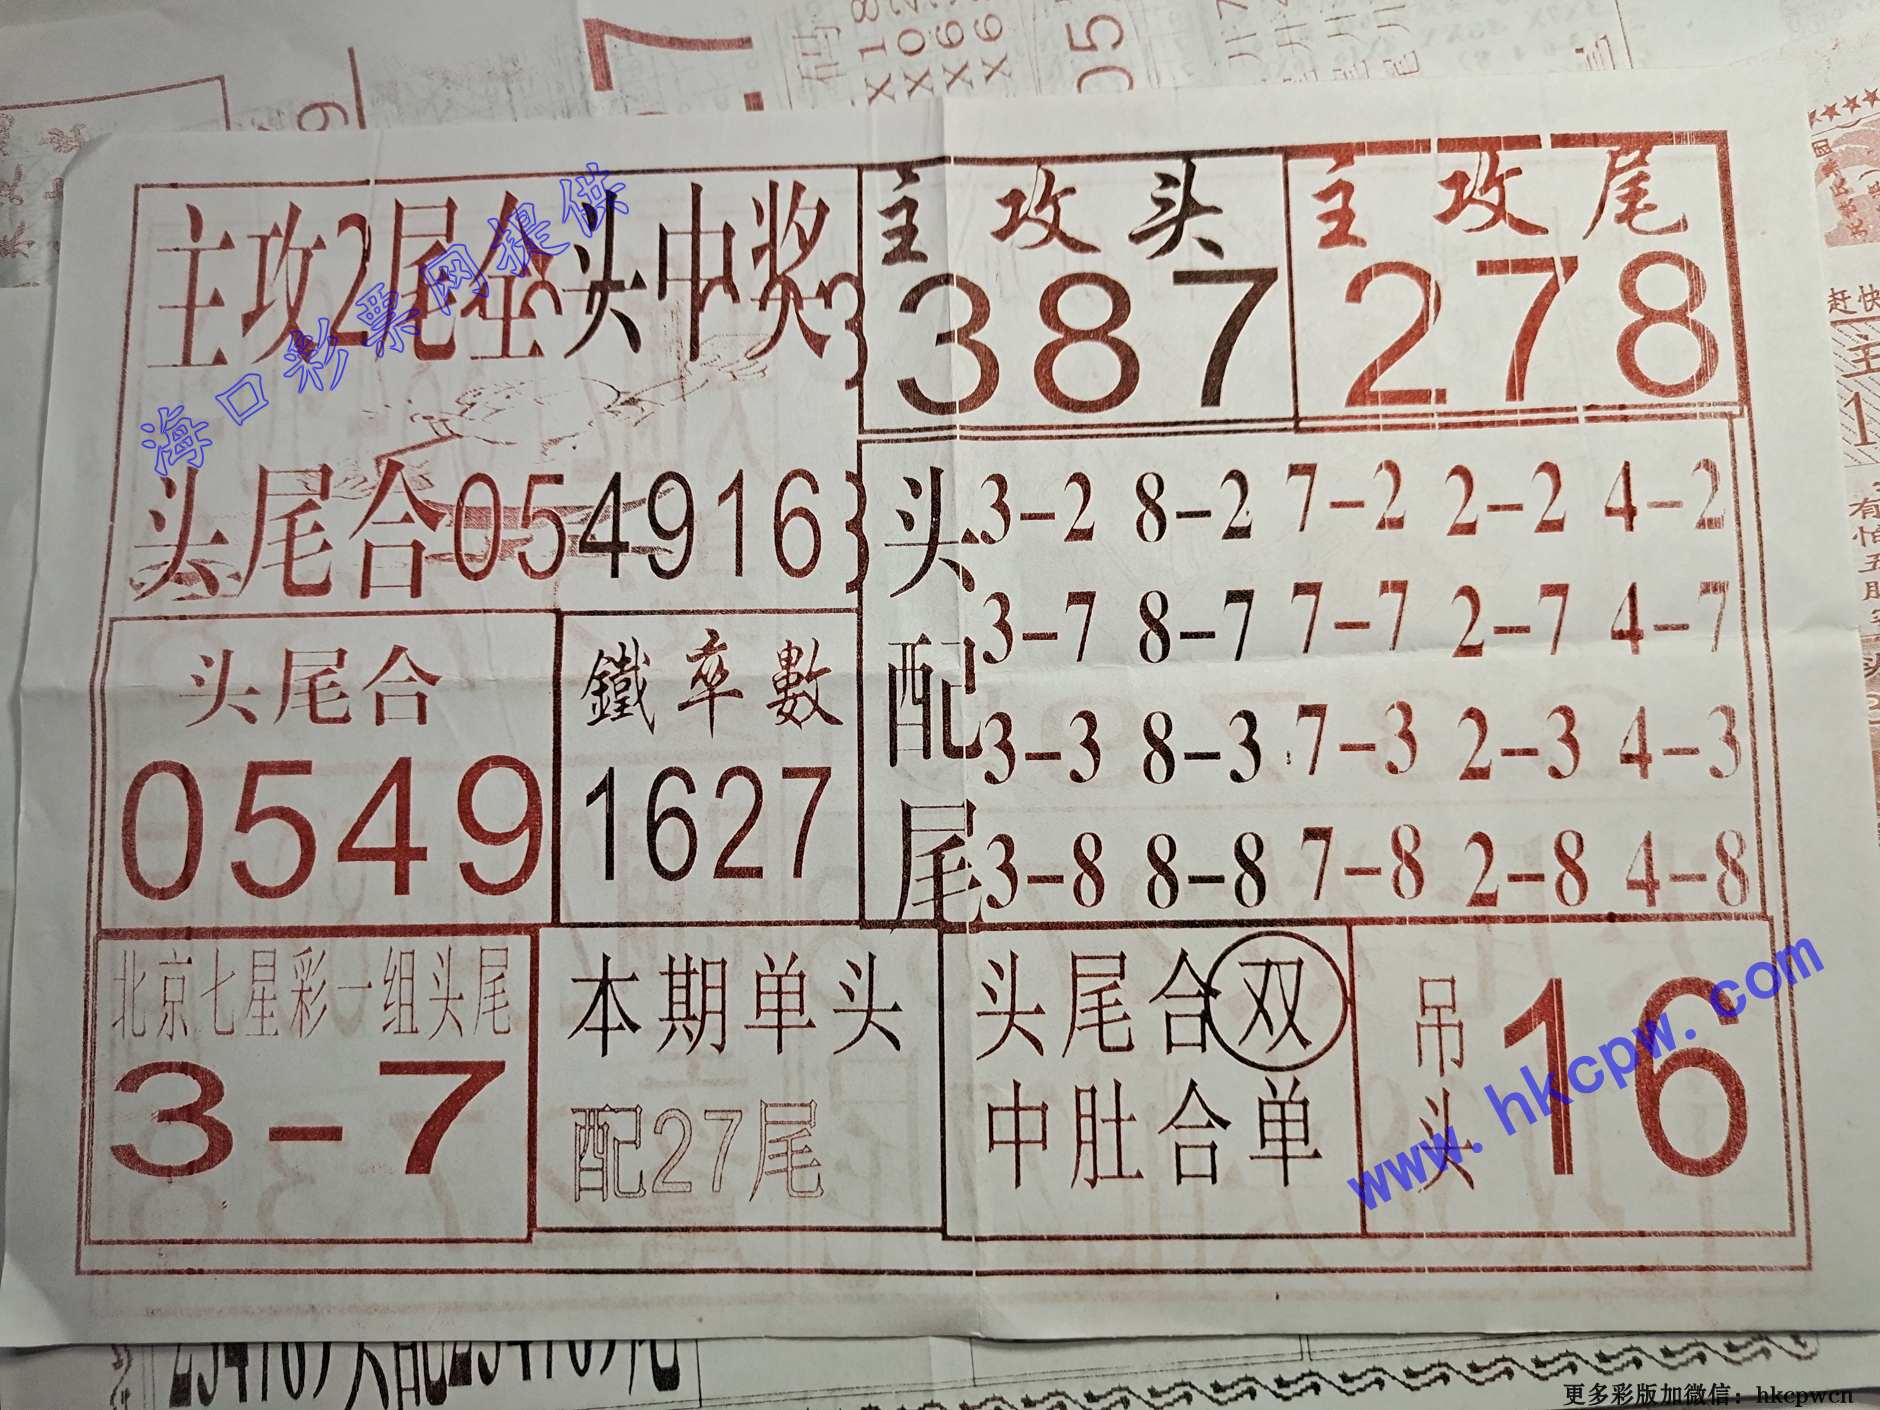 主攻2尾全头中奖
头尾合054916
主攻头
387
主攻尾
278
头配尾
3-2 8-2 7-2 2-2 4-2
3-7 8-7 7-7 2-7 4-7
3-3 8-3 7-3 2-3 4-3
3-8 8-8 7-8 2-8 4-8
头尾合
0549
鐵卒數
1627
北京七星彩一组头尾
3-7
本期单头
配27尾
头尾合双
中肚合单
吊头16
海口彩票网提供
www.hkcpw.com
赶快
更多彩版加微信：hkcpwcn